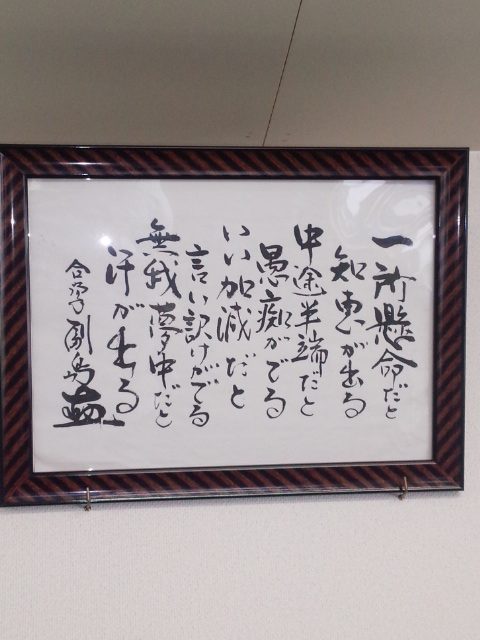 一所懸命だと
知恵が出る
中途半端だと
愚痴がでる
いい加減だと
言い訳けがでる
無我夢中だと
汗が出る